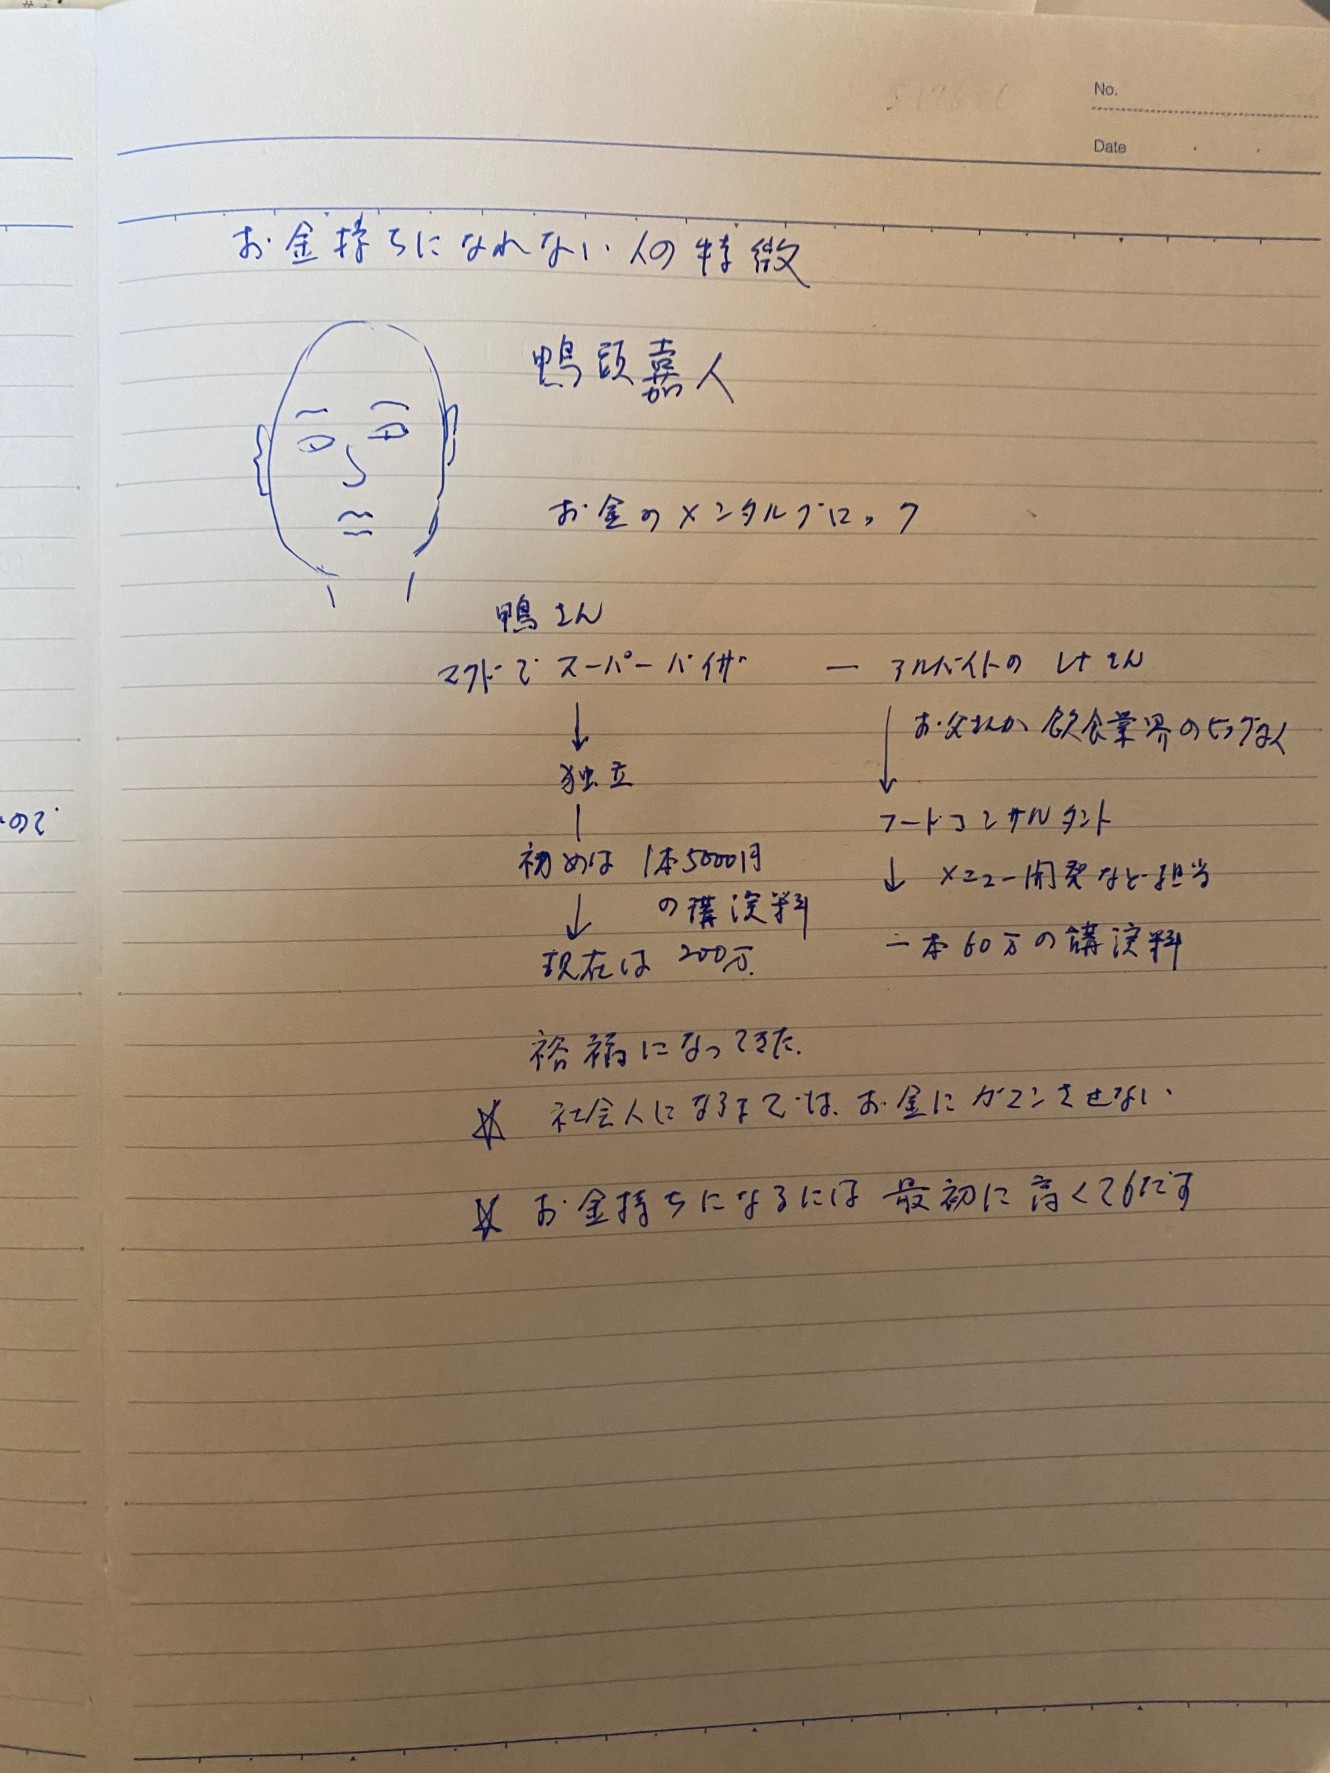 No.
Date
お金持ちになれない人の特徴
鴨頭嘉人
お金のメンタルブロック
鴨さん
マクドでスーパーバイザー ー アルバイトの レナさん
お父さんが飲食業界のビッグな人
独立
フードコンサルタント
初めは 1本5000円
の講演料
メニュー開発など担当
現在は 200万
一本60万の講演料
裕福になってきた.
☆ 社会人になるまでは、お金にガマンさせない
☆ お金持ちになるには 最初に高く
のて